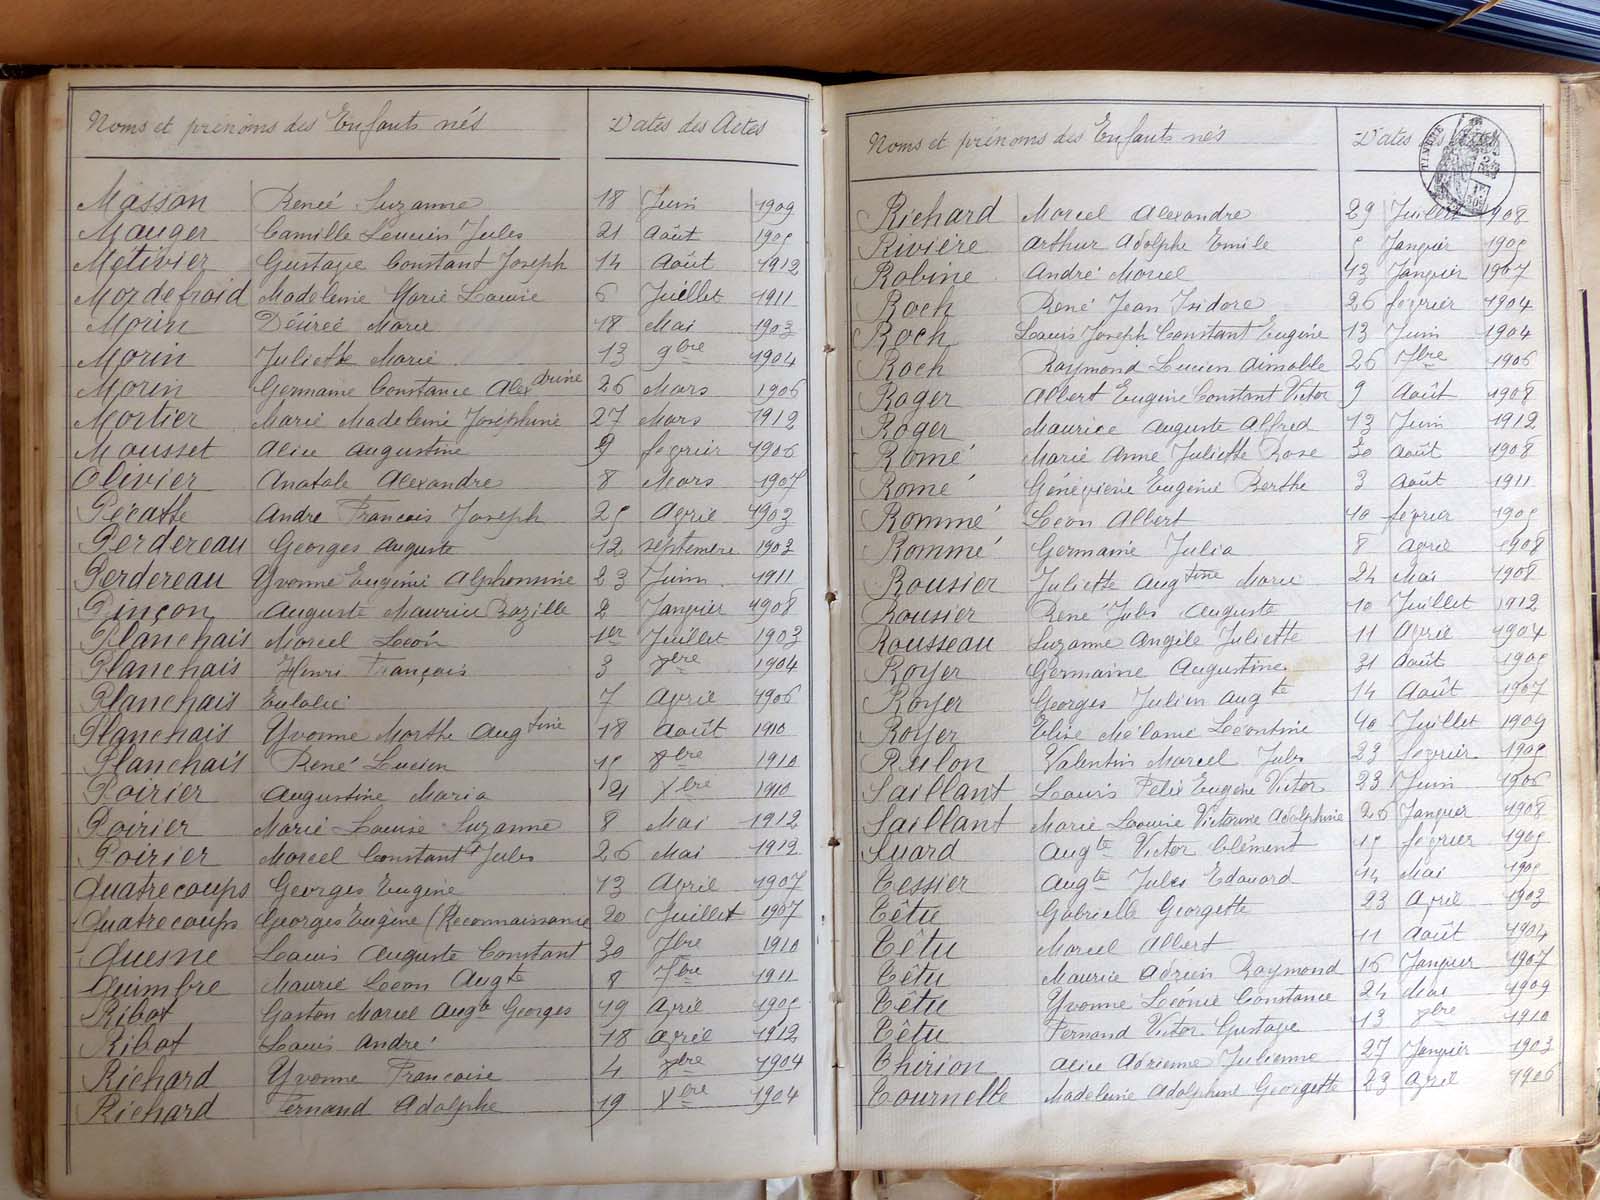 Noms et prénoms des Enfants nés Dates des Actes
Masson Renée Suzanne 18 Juin 1909
Mauger Camille Lucien Jules 21 Août 1905
Métivier Gustave Constant Joseph 14 Août 1912
Mordefroid Madeleine Marie Louise 6 Juillet 1911
Morin Désirée Marie 18 Mai 1903
Morin Juliette Marie 13 9bre 1904
Morin Germaine Constance Alexdrine 26 Mars 1906
Mortier Marie Madeleine Joséphine 27 Mars 1912
Mousset Alice Augustine 9 février 1906
Olivier Anatole Alexandre 8 Mars 1907
Pécatte André François Joseph 25 Avril 1903
Perdereau Georges Auguste 12 septembre 1903
Perdereau Yvonne Eugénie Alphonsine 23 Juin 1911
Pinçon Auguste Maurice Bazille 2 Janvier 1908
Planchais Marcel Léon 1er Juillet 1903
Planchais Henri François 3 1904
Planchais Eulalie 7 Avril 1906
Planchais Yvonne Marthe Augtine 18 Août 1910
Planchais René Lucien 15 1910
Poirier Augustine Maria 21 Xbre 1910
Poirier Marie Louise Suzanne 8 Mai 1912
Poirier Marcel Constant Jules 26 Mai 1912
Quatrecoups Georges Eugène 13 Avril 1907
Quatrecoups Georges Eugène (Reconnaissance 20 Juillet 1907
Quesne Louis Auguste Constant 30 7bre 1910
Quimbre Maurice Léon Augte 8 7bre 1911
Ribot Gaston Marcel Augte Georges 19 Avril 1905
Ribot Louis André 18 avril 1912
Richard Yvonne Françoise 4 1904
Richard Fernand Adolphe 19 Xbre 1904
Noms et prénoms des Enfants nés Dates des
TIMBRE
Richard Marcel Alexandre 29 Juillet 1908
Rivière Arthur Adolphe Emile 5 Janvier 1905
Robine André Marcel 13 Janvier 1907
Roch René Jean Isidore 26 février 1904
Roch Louis Joseph Constant Eugène 13 Juin 1904
Roch Raymond Lucien Aimable 26 7bre 1906
Roger Albert Eugène Constant Victor 9 Août 1908
Roger Maurice Auguste Alfred 13 Juin 1912
Romé Marie Anne Juliette Rose 30 Août 1908
Romé Geneviève Eugénie Berthe 3 Août 1911
Rommé Léon Albert 10 février 1905
Rommé Germaine Julia 8 Avril 1908
Rousier Juliette Augtine Marie 24 Mai 1908
Rousier René Jules Auguste 10 Juillet 1912
Rousseau Suzanne Angèle Juliette 11 Avril 1904
Royer Germaine Augustine 31 Août 1905
Royer Georges Julien Augte 14 Août 1907
Royer Elise Mélanie Léontine 10 Juillet 1909
Rulon Valentin Marcel Jules 23 février 1905
Saillant Louis Félix Eugène Victor 23 Juin 1906
Saillant Marie Louise Victorine Adolphine 26 Janvier 1908
Suard Augte Victor Clément 15 février 1905
Tessier Augte Jules Edouard 14 Mai 1905
Têtu Gabrielle Georgette 23 Avril 1903
Têtu Marcel Albert 11 Août 1904
Têtu Maurice Adrien Raymond 16 Janvier 1907
Têtu Yvonne Léonie Constance 24 Mai 1909
Têtu Fernand Victor Gustave 13 1910
Thirion Alice Adrienne Julienne 27 Janvier 1903
Tournelle Madeleine Adolphine Georgette 23 Avril 1906